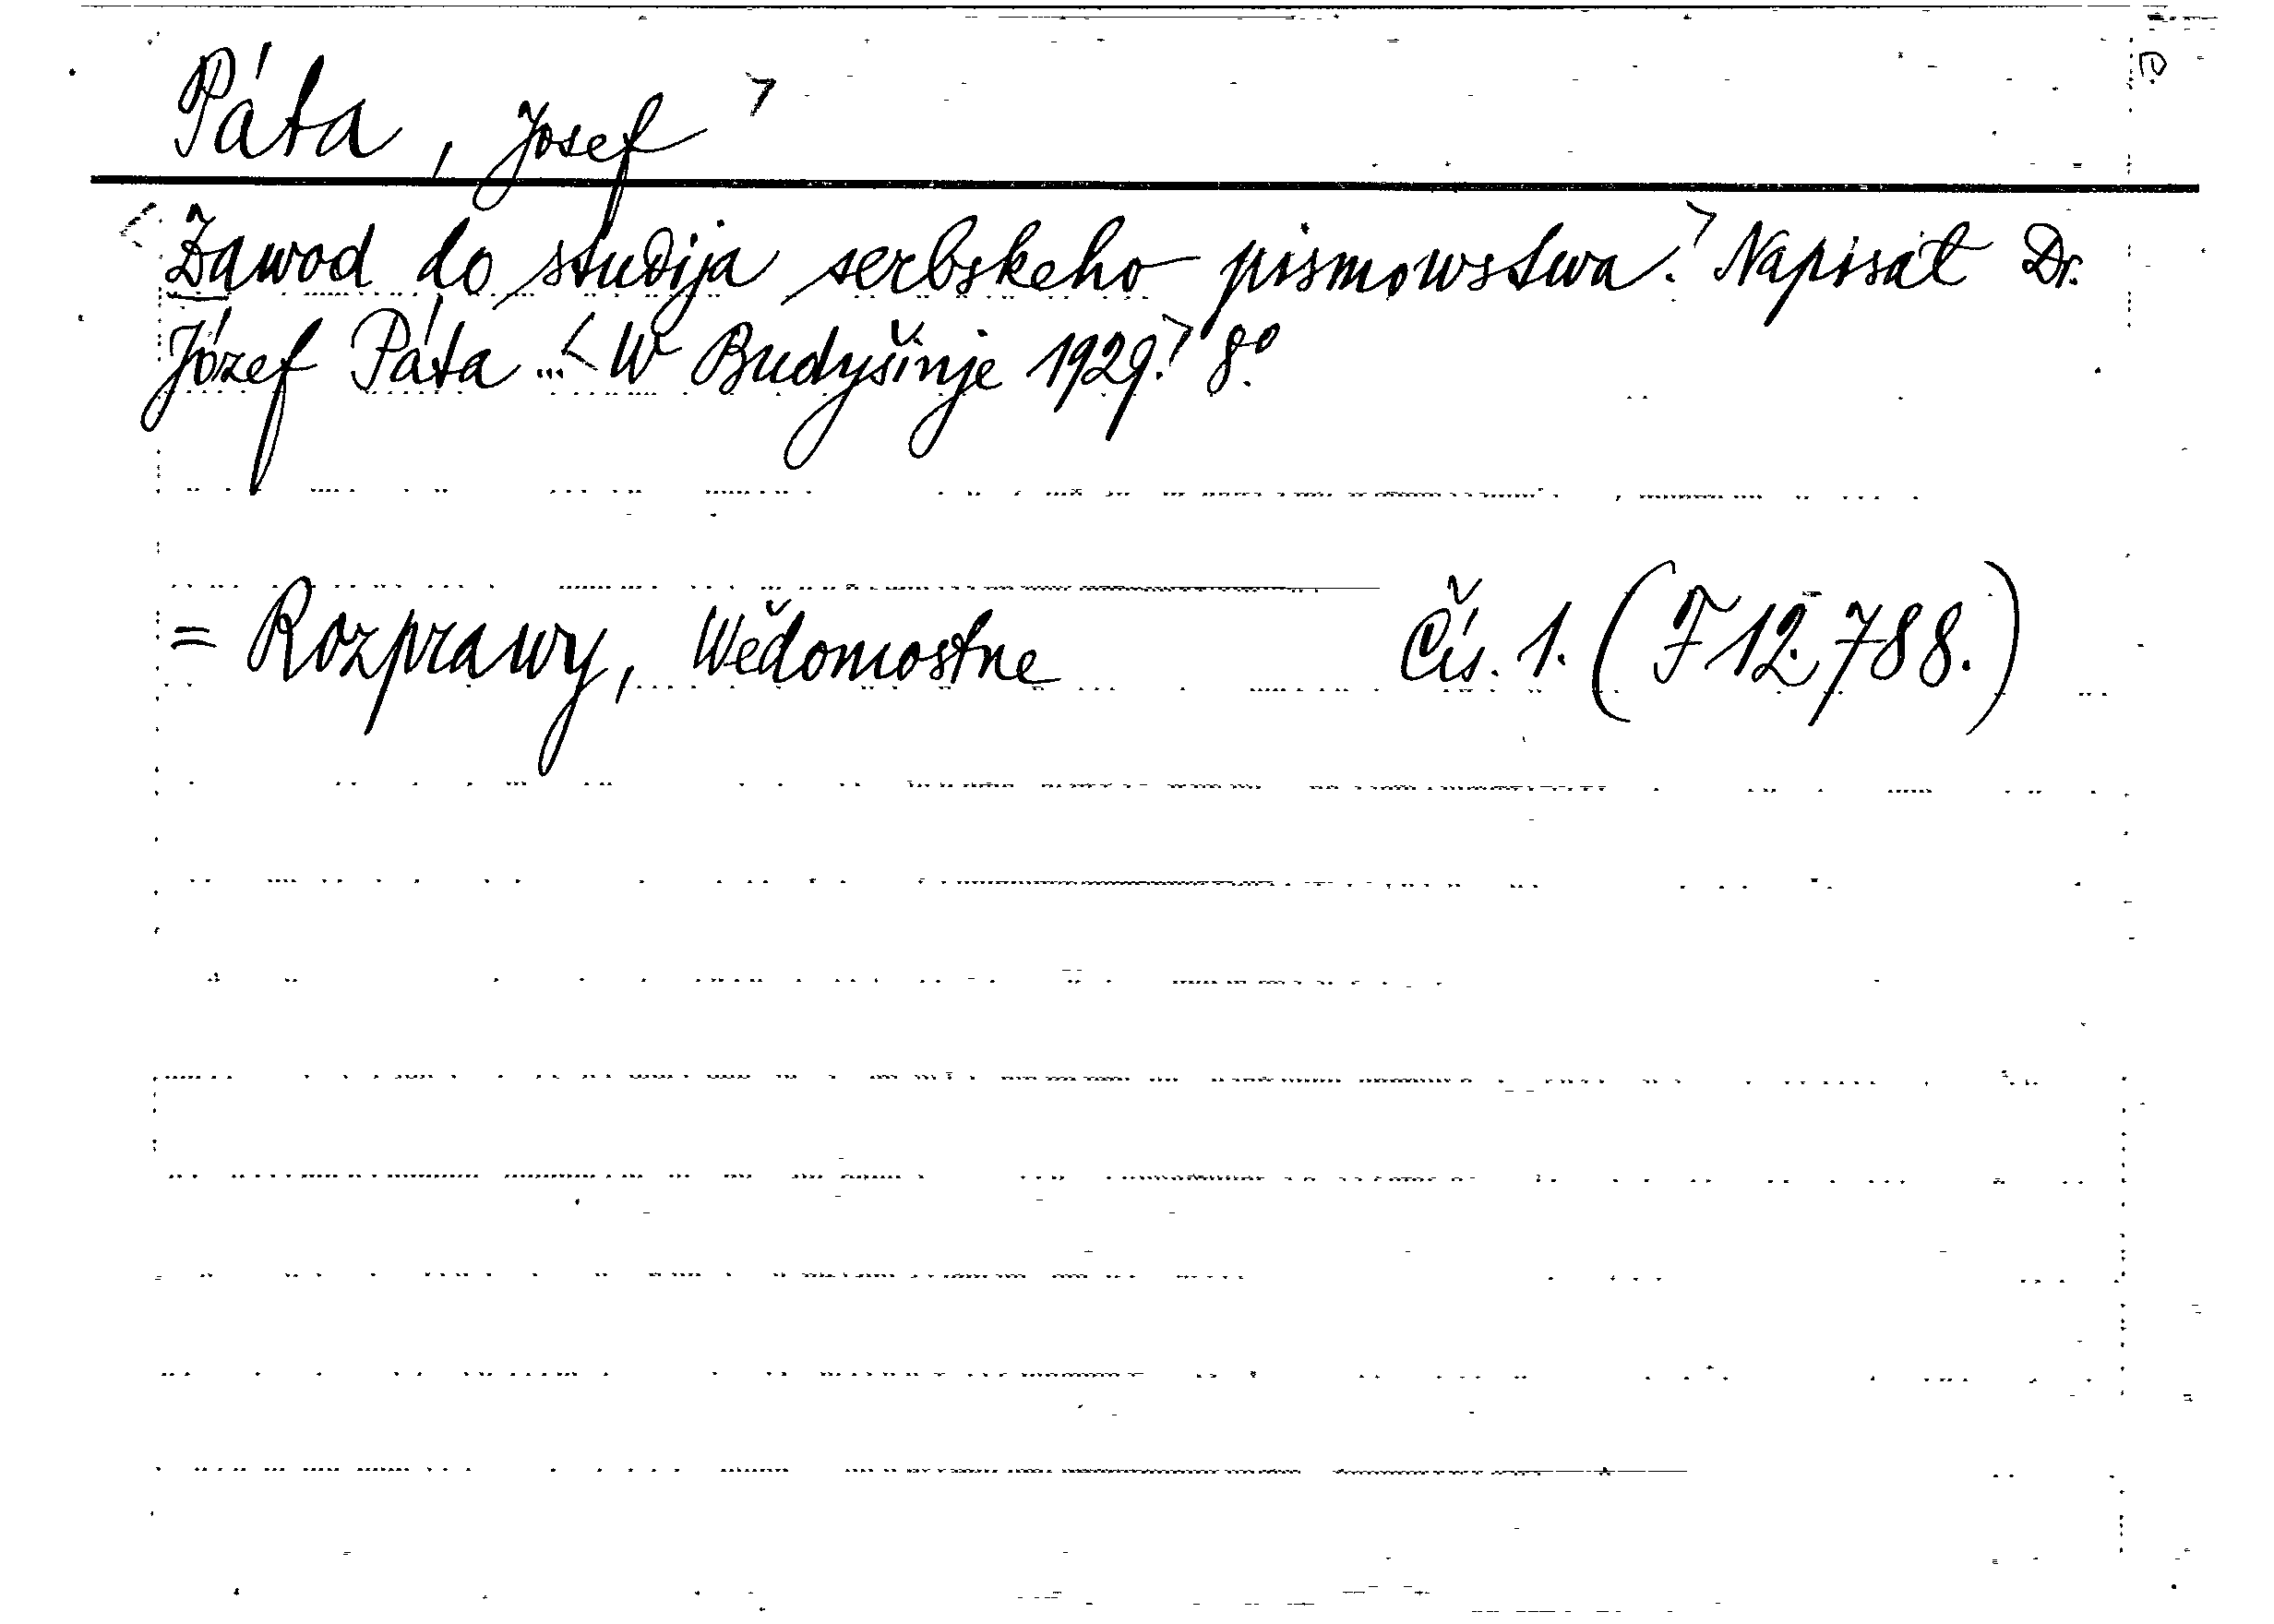 Páta, Josef
Zawod do studija serbskeho pismowstwa. Napisał Dr.
Józef Páta ... W Budyšinje 1929. 8.º
= Rozprawy, Wědomostne Čís. 1. (F 12.788.)